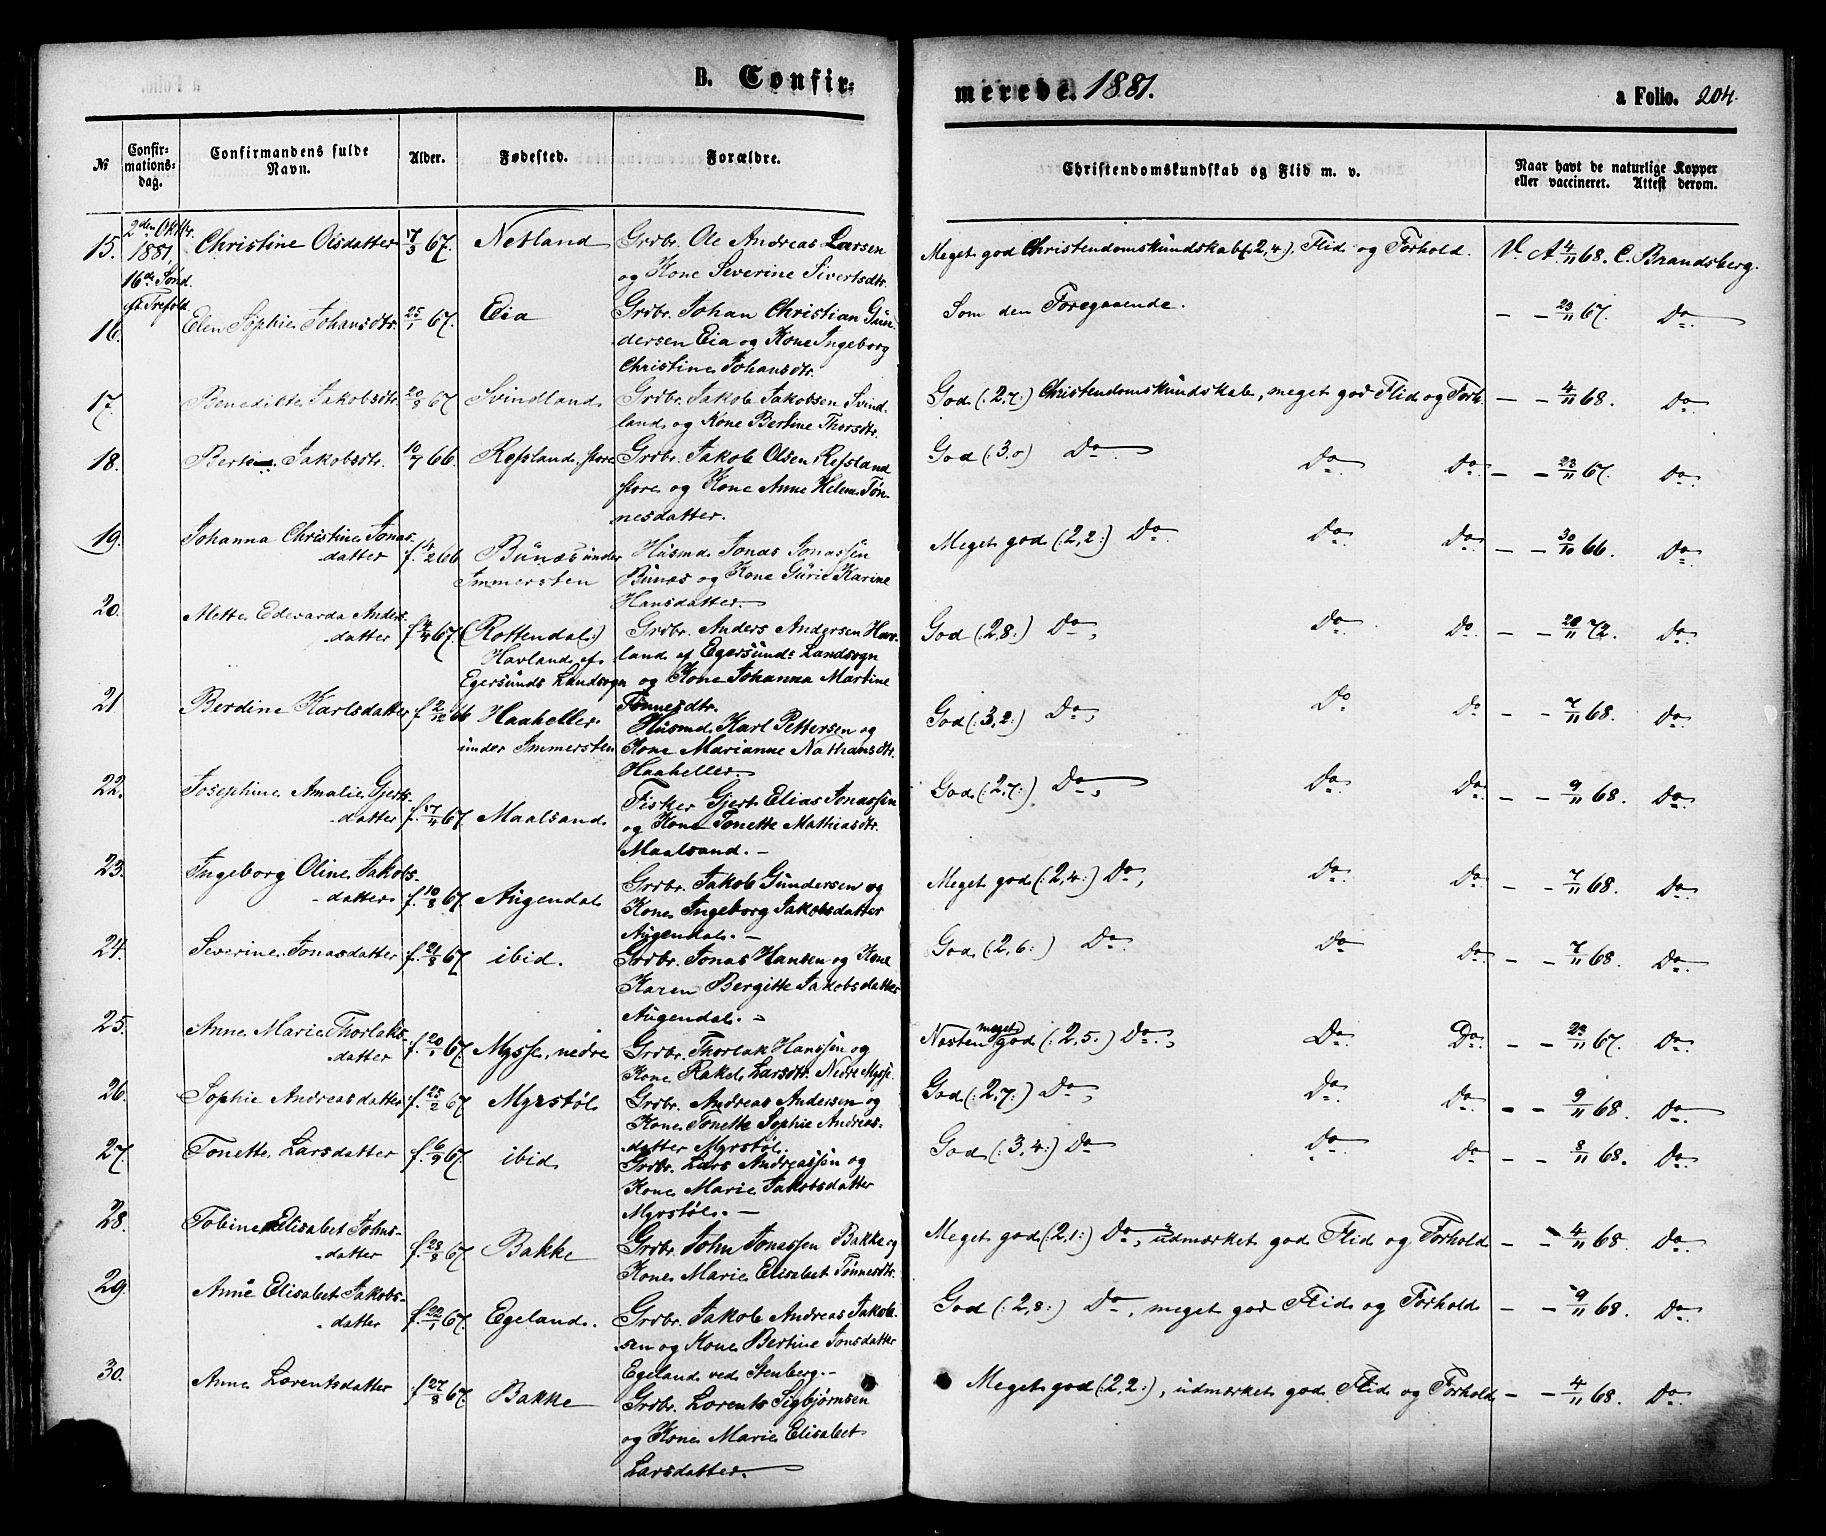 B. Confir-
merede. 1881.
a Folio. 204.
№
Confir-
mations-
dag.
Confirmandens fulde
Navn.
Alder.
Fødested.
Forældre.
Christendomskundskab og Flid m. v.
Naar havt de naturlige Kopper
eller vaccineret. Attest derom.
2den Oktbr.
1881,
16de Sönd.
ft. Trefold.
15. Christine Olsdatter 17/3 67. Netland Grdbr. Ole Andreas Larsen
og Kone Severine Sivertsdtr.
Meget god Christendomskundskab (2,4). Flid og Forhold. V. A 4/11 68. C. Brandsberg.
16. Elen Sophie Johansdtr. 25/1 67. Eia Grdbr. Johan Christian Gun-
dersen Eia og Kone Ingeborg
Christine Johansdtr.
Som den Foregaaende. — — 23/11 67. Do.
17. Benedikte Jakobsdtr. 20/8 67 Svindland Grdbr. Jakob Jakobsen Svind-
land og Kone Bertine Thorsdtr.
God (:2,7:) Christendomskundskab, meget god Flid og Forh. — — 4/11 68. Do.
18. Jakobsdtr. 10/7 66. Refsland, store Grdbr. Jakob Olsen Refsland
store og Kone Anne Helene Tön-
nesdatter.
God (:3,0) Do Do Do — — 23/11 67. Do.
19. Johanna Christine Jonas-
datter f. 4/2 66 Bünæs under Husmd. Jonas Jonassen
Immersten Bünæs og Kone Gürie Karine
Hansdatter.
Meget god (:2,2:) Do Do. Do. — — 30/10 66. Do.
20. Mette Edevarda Anders-
datter f. 4/4 67. (Rottendal:) Grdbr. Anders Andersen Hav-
Havland af land af Egersunds Landsogn
Egersunds Landsogn og Kone Johanna Martine
Tönnesdtr.
God (:2,8:) Do, Do. Do — — 20/11 72. Do
21 Berdine Karlsdatter f. 2/12 66 Haaheller Husmd. Karl Pettersen og
under Immersten Kone Marianne Nathansdtr.
Haaheller.
God (:3,2:) Do, Do Do — — 7/11 68. Do
22. Josephine Amalie Gjerts-
datter f. 17/11 67. Maalsand Fisker Gjert Elias Jonassen
og Kone Tonette Mathiasdtr.
Maalsand. —
God (:2,7:) Do, Do. Do. — — 9/11 68. Do.
23. Ingeborg Oline Jakobs-
datter f. 10/8 67 Augendal Grdbr. Jakob Gundersen og
Kone Ingeborg Jakobsdatter
Augendal. —
Meget god (:2,4:) Do, Do. Do — — 7/11 68. Do.
24. Severine Jonasdatter f. 21/8 67 ibid. Grdbr. Jonas Hansen og Kone
Karen Bergitte Jakobsdatter
Augendal. —
God (:2,6:) Do Do Do — — 7/11 68. Do.
25. Anne Marie Thorlaks-
datter f. 20/1 67. Mysse, nedre Grdbr. Thorlak Hanssen og
Kone Rakel Larsdtr. Nedre Mysse.
Næsten meget god (:2,5:) Do, Do. Do. — — 23/11 67. Do.
26. Sophie Andreasdatter f. 25/2 67 Myrstöl Grdbr. Andreas Andersen og
Kone Tonette Sophie Andreas-
datter Myrstöl.
God (:2,7:) Do, Do. Do. — — 9/11 68. Do.
27. Tonette Larsdatter f. 6/9 67. ibid. Grdbr. Lars Andreassen og
Kone Marie Jakobsdatter
Myrstöl. —
God (:3,4:) Do Do. Do — — 8/11 68. Do.
28. Tobine Elisabet Johns-
datter f. 28/8 67. Bakke Grdbr. John Jonassen Bakke og
Kone Marie Elisabet Tönnesdtr.
Meget god (:2,1:) Do, udmærket god Flid og Forhold — — 4/11 68. Do.
29. Anne Elisabet Jakobs-
datter f. 22/1 67. Egeland. Grdbr. Jakob Andreas Jakob-
sen og Kone Bertine Jonsdatter
Egeland ved Stenberg. —
God (:2,8:) Do, meget god Flid og Forhold — — 9/11 68. Do.
30. Anne Lorentsdatter f. 27/8 67. Bakke Grdbr. Lorents Sigbjörnsen
og Kone Marie Elisabet
Larsdatter.
Meget god (:2,2:), udmærket god Flid og Forhold — — 4/11 68. Do.